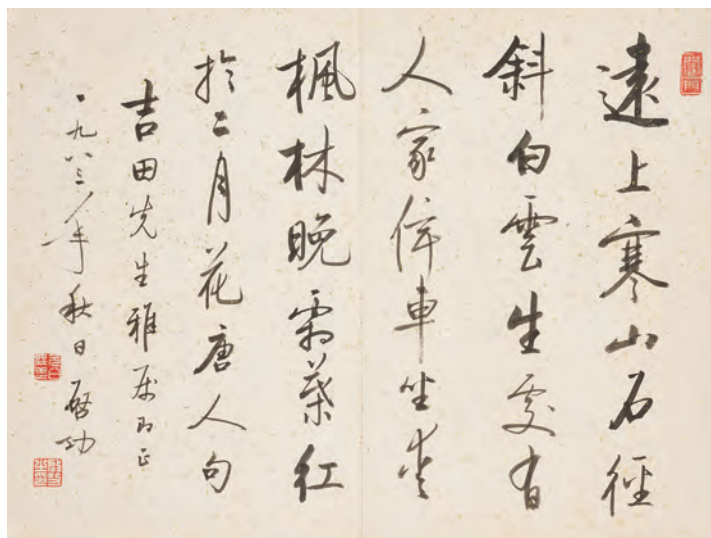 遠上寒山石徑
斜白雲生處有
人家停車坐愛
楓林晚霜葉紅
於二月花唐人句
吉田先生雅屬即正
一九八三年秋日啟功